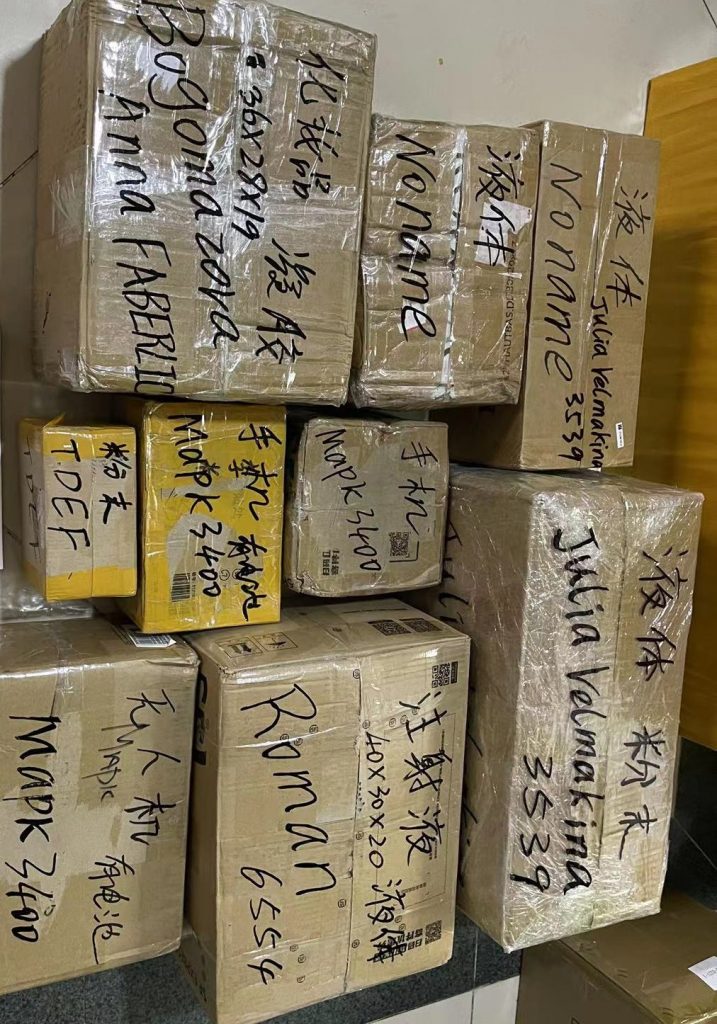 化妆品
36X28X19
凝胶
Bogomazova
Anna FABERLIC
液体
Noname
液体
Julia Velmakina
Noname 3539
粉末
T.DEF.
手机 有电池
Mapk 3400
手机
Mapk 3400
液体 粉末
Julia Velmakina
3539
注射液
40X30X20 液体
Roman
6554
无人机 有电池
Mapk 3400